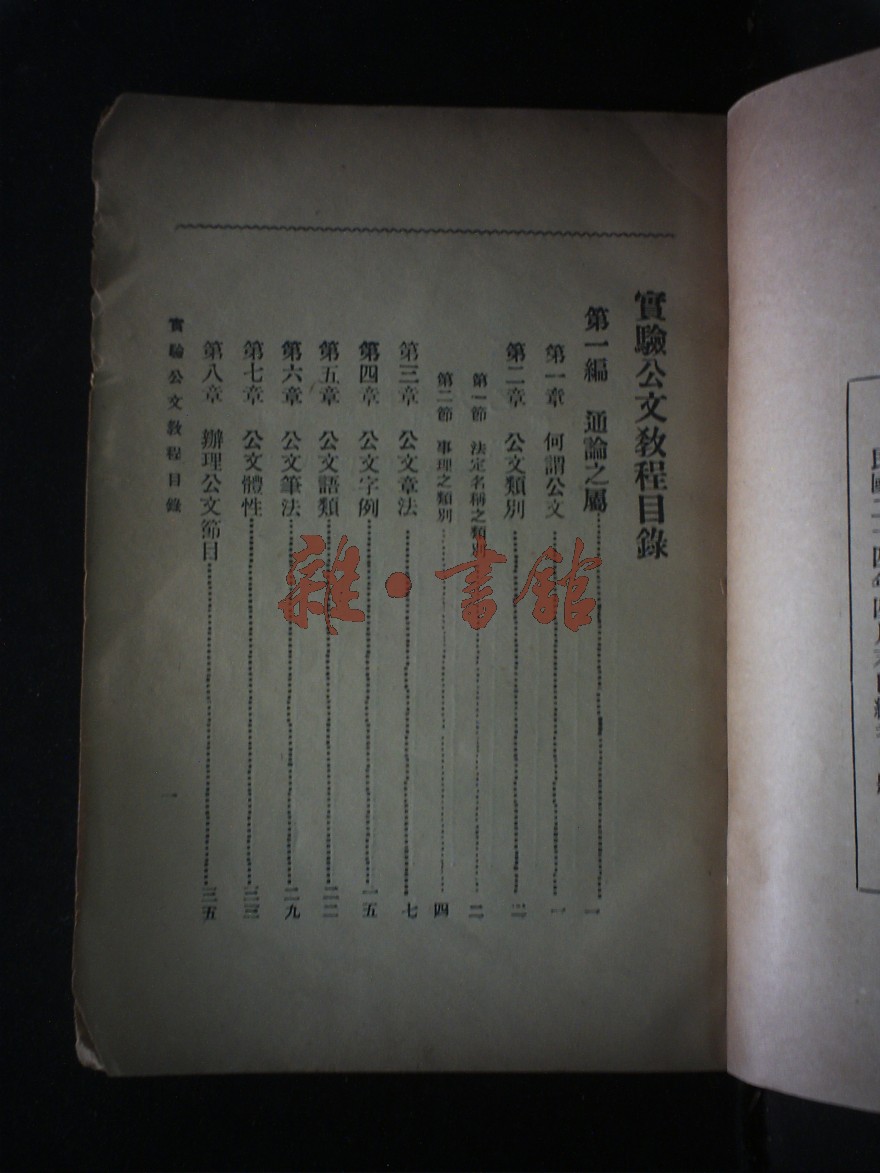 實驗公文教程目錄
第一編　通論之屬……一
第一章　何謂公文……一
第二章　公文類別……二
第一節　法定名稱之類別……二
第二節　事理之類別……四
第三章　公文章法……七
第四章　公文字例……一五
第五章　公文語類……二二
第六章　公文筆法……二九
第七章　公文體性……三三
第八章　辦理公文節目……三五
實驗公文教程目錄
一
雜·書館